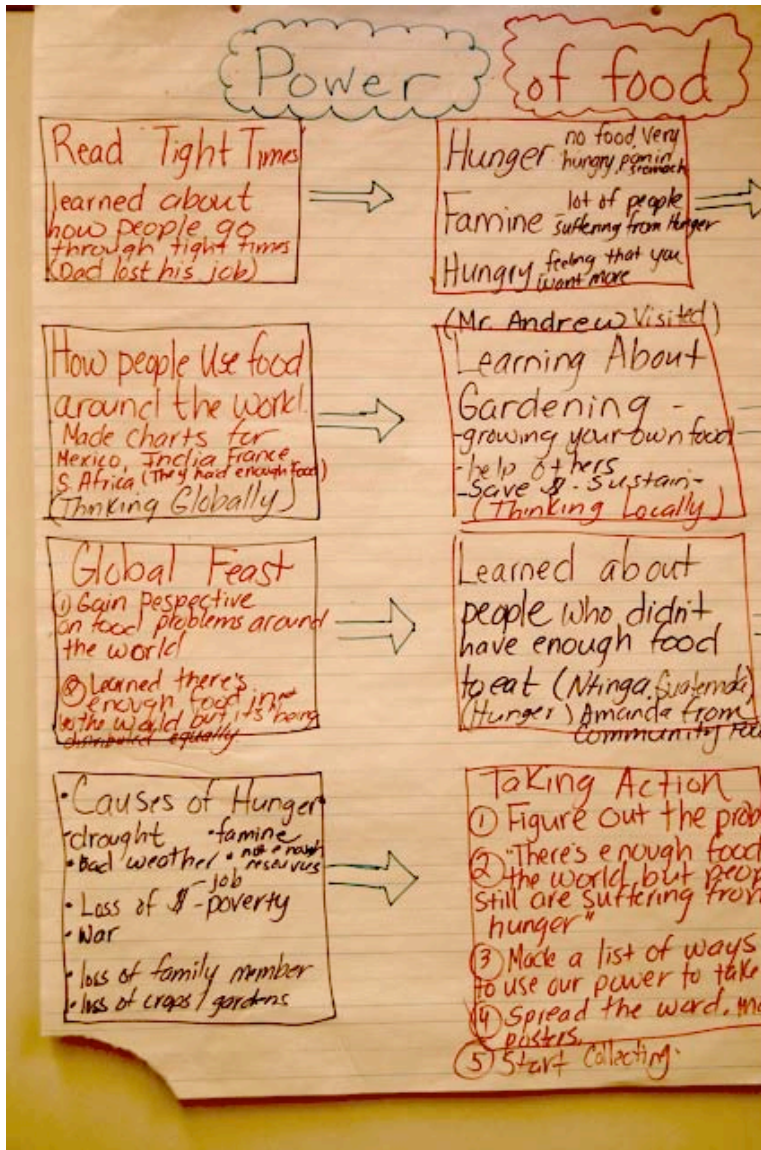 Power of food
Read Tight Times
learned about
how people go
through tight times
(Dad lost his job)
Hunger no food, Very
hungry, pain in
stomach
Famine - lot of people
suffering from Hunger
Hungry feeling that you
want more
How people Use food
around the world.
Made charts for
Mexico, India France
S. Africa (They had enough food)
(Thinking Globally)
(Mr. Andrew Visited)
Learning About
Gardening -
-growing your own food
-help others
-Save $ - Sustain-
(Thinking Locally)
Global Feast
① Gain pespective
on food problems around
the world
② Learned there's
enough food in
the world but it's being
distributed equally.
Learned about
people who didn't
have enough food
to eat (Ntinga, Guatemala)
(Hunger) Amanda from
Community
• Causes of Hunger
• drought • famine
• Bad weather • not enough
resources
• Loss of $ - job
- poverty
• War
• loss of family member
• loss of crops / gardens
Taking Action
① Figure out the prob
② "There's enough food
the world but peop
still are suffering from
hunger"
③ Made a list of ways
to use our power to take
④ Spread the word, ma
posters.
⑤ Start Collecting.